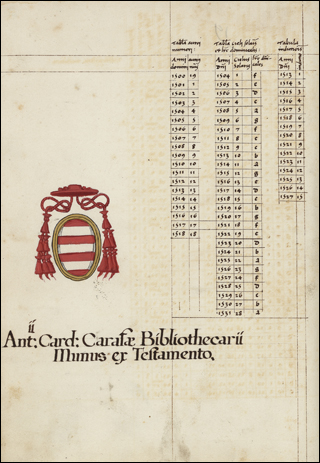 Tabla aurei
numeri
Anni
domini
aurei
1500 19
1501 1
1502 2
1503 3
1504 4
1505 5
1506 6
1507 7
1508 8
1509 9
1510 10
1511 11
1512 12
1513 13
1514 14
1515 15
1516 16
1517 17
1518 18
Tabla Cicli solaris
dominicalis
Anni
Dñi
Ciclus
Solaris
1504 1 f
1505 2 e
1506 3 D
1507 4 c
1508 5 A
1509 6 g
1510 7 f
1511 8 e
1512 9 c
1513 10 b
1514 11 A
1515 12 g
1516 13 e
1517 14 D
1518 15 c
1519 16 b
1520 17 g
1521 18 f
1522 19 e
1523 20 D
1524 21 b
1525 22 A
1526 23 g
1527 24 f
1528 25 D
1529 26 c
1530 27 b
1531 28 A
Tabula
indictionis
Anni
Dñi
1513 1
1514 2
1515 3
1516 4
1517 5
1518 6
1519 7
1520 8
1521 9
1522 10
1523 11
1524 12
1525 13
1526 14
1527 15
ii
Ant: Card: Carafæ Bibliothecarii
Munus ex Testamento.